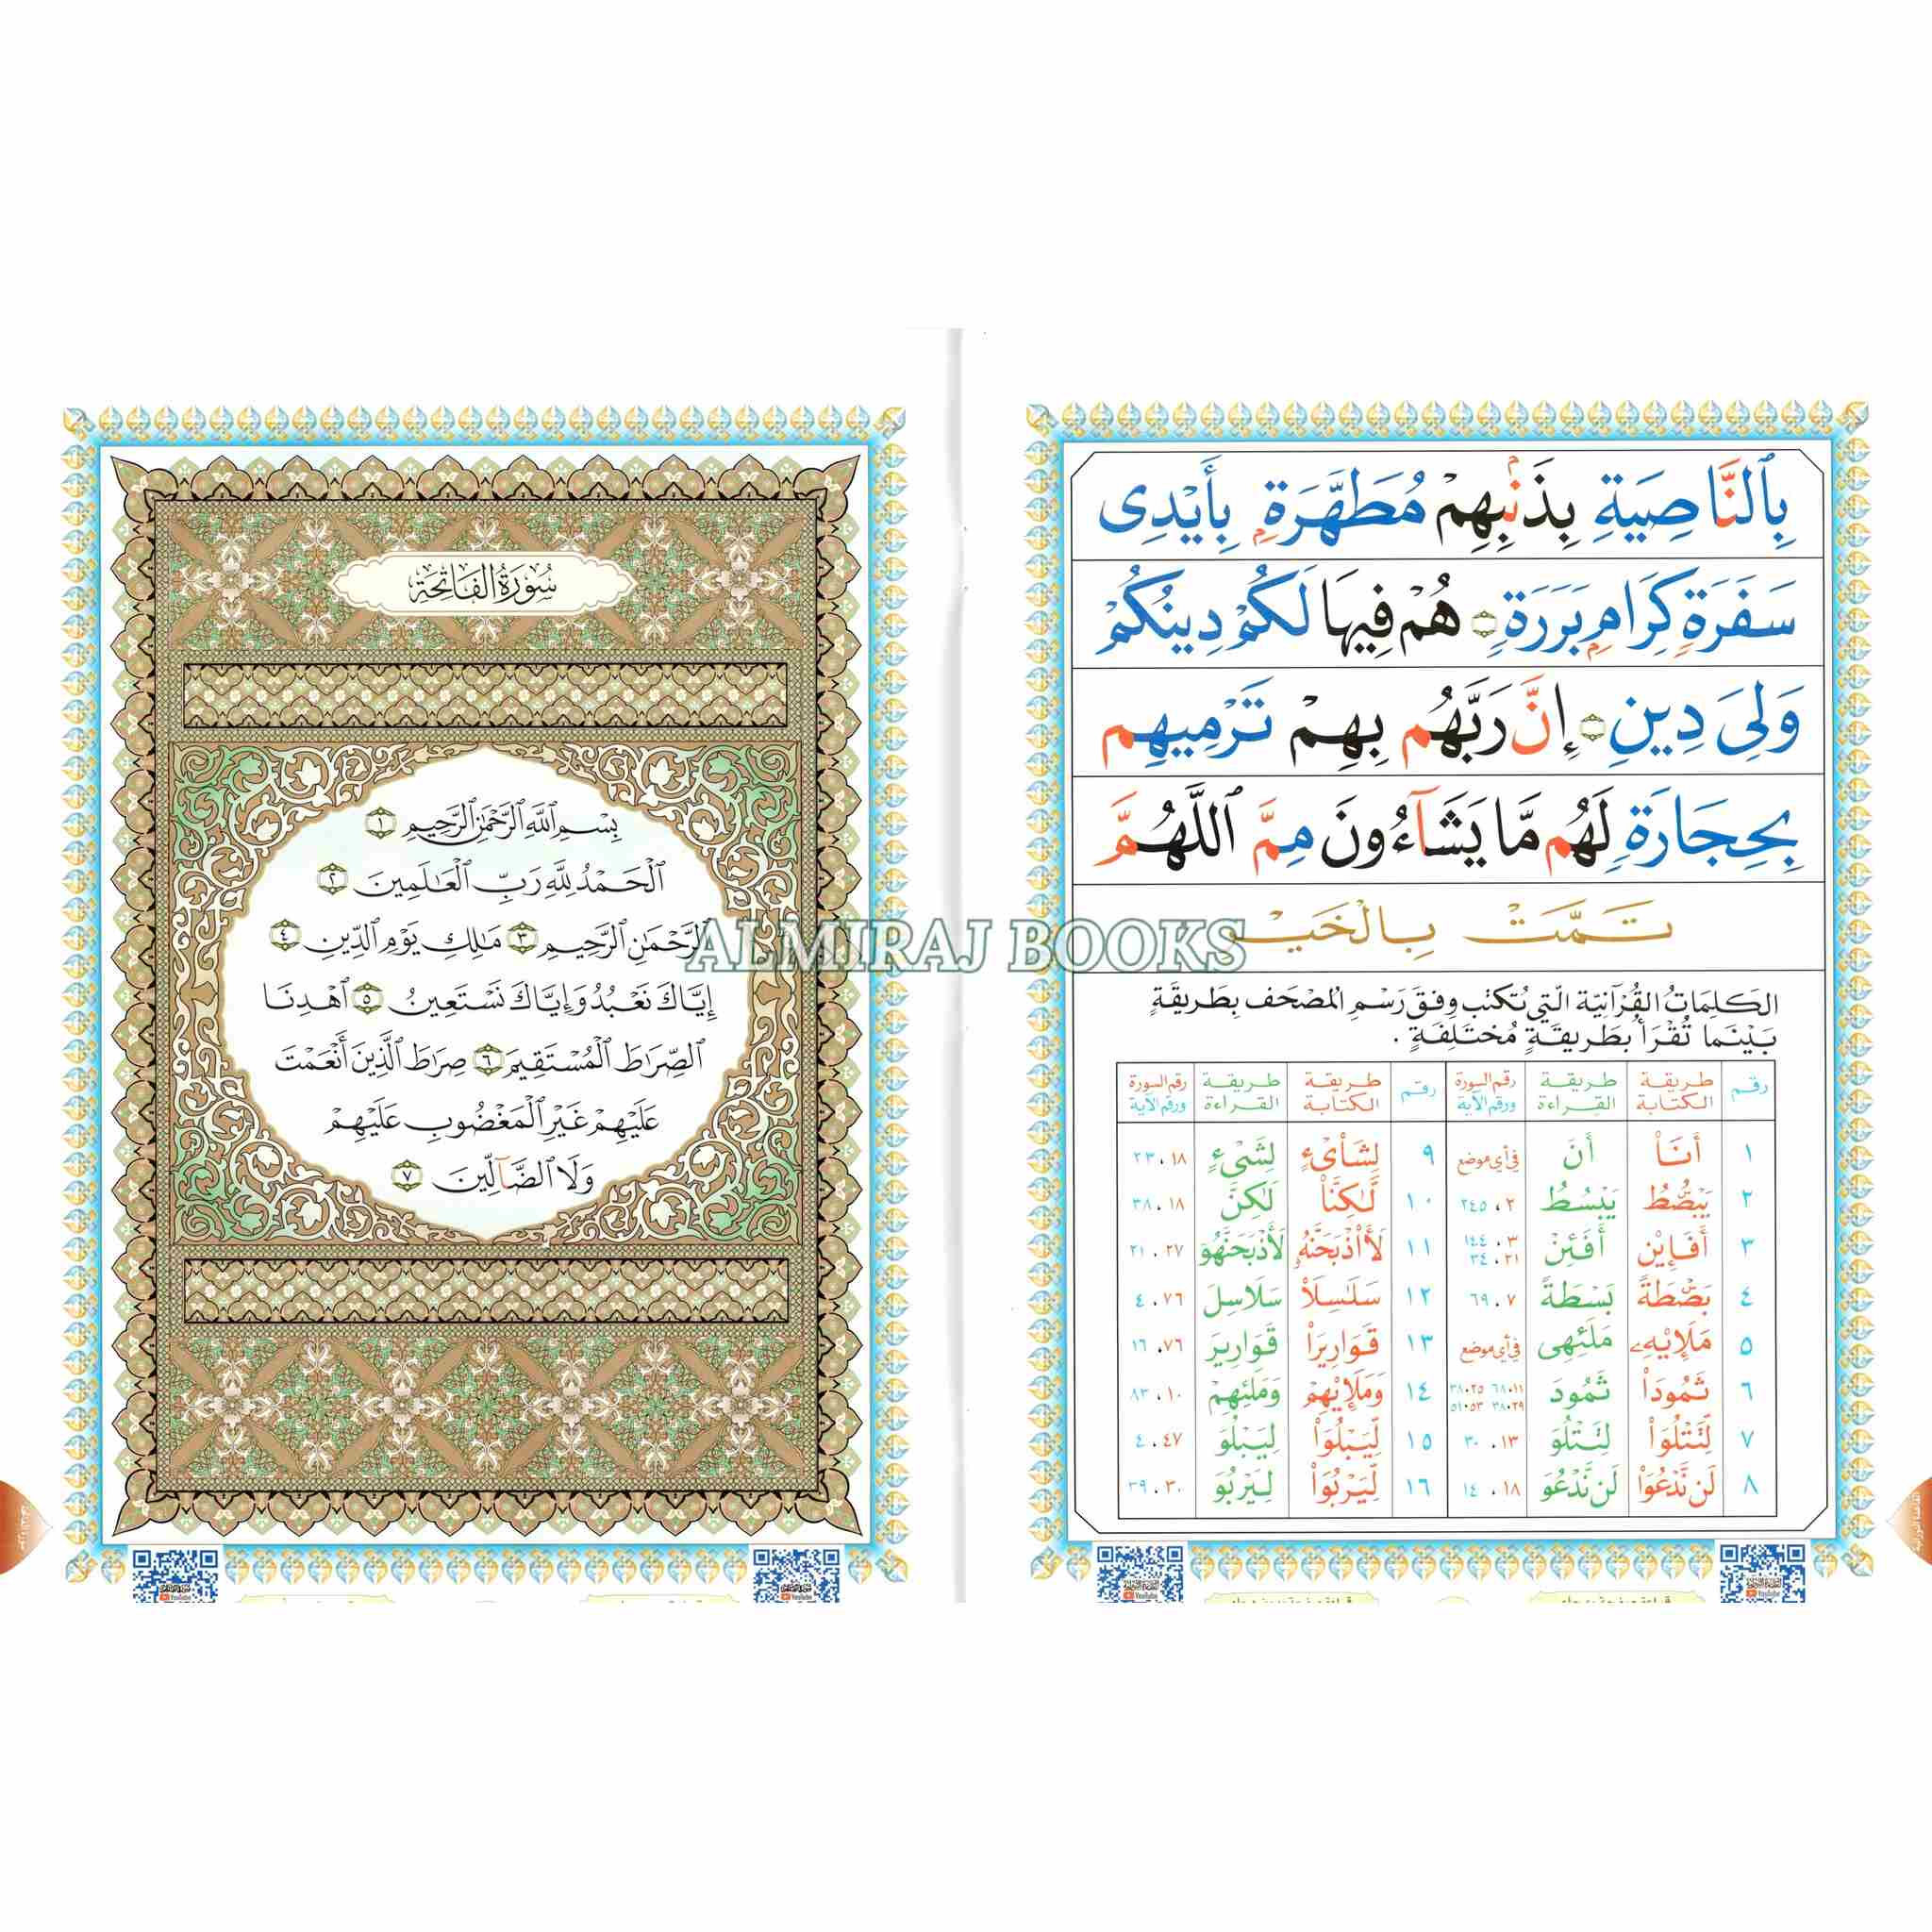 بِٱلنَّاصِيَةِ بِذَنۢبِهِمْ مُطَهَّرَةٍۭ بِأَيْدِى
سَفَرَةٍ كِرَامٍۭ بَرَرَةٍ هُمْ فِيهَا لَكُمْ دِينُكُمْ
وَلِىَ دِينِ إِنَّ رَبَّهُم بِهِمْ تَرْمِيهِم
بِحِجَارَةٍ لَهُم مَّا يَشَآءُونَ مِمَّ ٱللَّهُمَّ
تَمَّتْ بِالْخَيْ
الكَلِمَاتُ القُرْآنِيَّة الَّتِي تُكتَب وِفقَ رَسْمِ المُصْحَف بِطَرِيقَةٍ
بَيْنَمَا تُقْرَأُ بِطَرِيقَةٍ مُخْتَلِفَةٍ .
رقم طريقة الكتابة طريقة القراءة رقم السورة ورقم الآية رقم طريقة الكتابة طريقة القراءة رقم السورة ورقم الآية
١ أَنَا۠ أَنَ في أي موضع ٩ لِشَا۟ىْءٍ لِشَىْءٍ ١٨ . ٢٣
٢ يَبْصُۜطُ يَبْسُطُ ٢ . ٢٤٥ ١٠ لَّٰكِنَّا۠ لَٰكِنَّ ١٨ . ٣٨
٣ أَفَإِي۟ن أَفَئِنْ ٣ . ١٤٤ ٢١ . ٣٤ ١١ لَأَا۟ذْبَحَنَّهُۥ لَأَذْبَحَنَّهُوَ ٢٧ . ٢١
٤ بَصْۜطَةً بَسْطَةً ٧ . ٦٩ ١٢ سَلَٰسِلَا۟ سَلَاسِلَ ٧٦ . ٤
٥ مَلَإِي۟هِۦ مَلَئِهِى في أي موضع ١٣ قَوَارِيرَا۟ قَوَارِيرَ ٧٦ . ١٦
٦ ثَمُودَا۟ ثَمُودَ ١١.٦٨ ٢٥.٣٨ ٢٩.٣٨ ٥٣.٥١ ١٤ وَمَلَإِي۟هِمْ وَمَلَئِهِمْ ١٠ . ٨٣
٧ لِّتَتْلُوَا۟ لِتَتْلُوَ ١٣ . ٣٠ ١٥ لِّيَبْلُوَا۟ لِيَبْلُوَ ٤٧ . ٤
٨ لَن نَّدْعُوَا۟ لَن نَّدْعُوَ ١٨ . ١٤ ١٦ لِّيَرْبُوَا۟ لِيَرْبُوَ ٣٠ . ٣٩
YouTube
YouTube
سُورَةُ الفَاتِحَة
بِسْمِ ٱللَّهِ ٱلرَّحْمَٰنِ ٱلرَّحِيمِ ١
ٱلْحَمْدُ لِلَّهِ رَبِّ ٱلْعَٰلَمِينَ ٢
ٱلرَّحْمَٰنِ ٱلرَّحِيمِ ٣ مَٰلِكِ يَوْمِ ٱلدِّينِ ٤
إِيَّاكَ نَعْبُدُ وَإِيَّاكَ نَسْتَعِينُ ٥ ٱهْدِنَا
ٱلصِّرَٰطَ ٱلْمُسْتَقِيمَ ٦ صِرَٰطَ ٱلَّذِينَ أَنْعَمْتَ
عَلَيْهِمْ غَيْرِ ٱلْمَغْضُوبِ عَلَيْهِمْ
وَلَا ٱلضَّآلِّينَ ٧
YouTube
YouTube
ALMIRAJ BOOKS